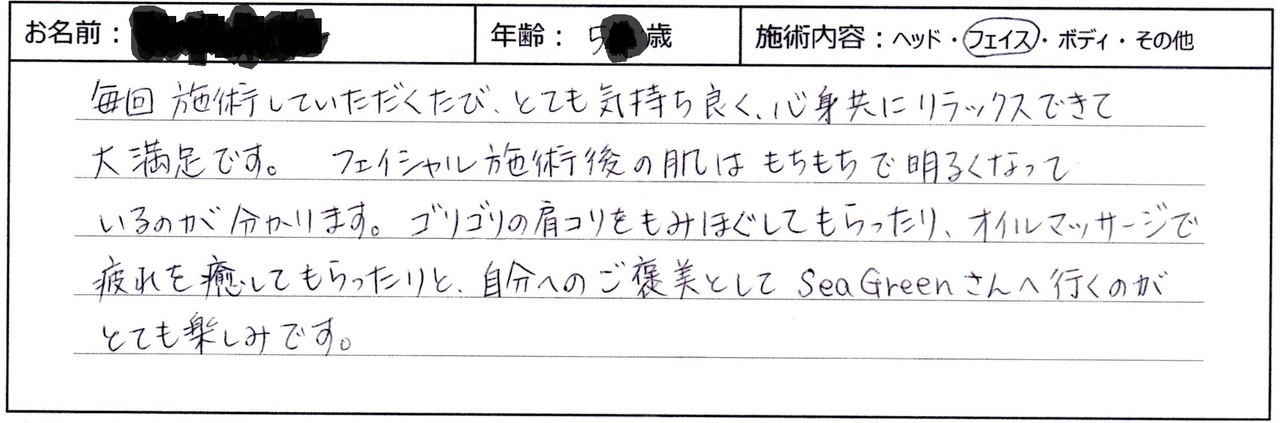 お名前： 年齢： 5 歳 施術内容：ヘッド・フェイス・ボディ・その他
毎回施術していただくたび、とても気持ち良く、心身共にリラックスできて
大満足です。 フェイシャル施術後の肌はもちもちで明るくなって
いるのが分かります。ゴリゴリの肩コリをもみほぐしてもらったり、オイルマッサージで
疲れを癒してもらったりと、自分へのご褒美として Sea Greenさんへ行くのが
とても楽しみです。